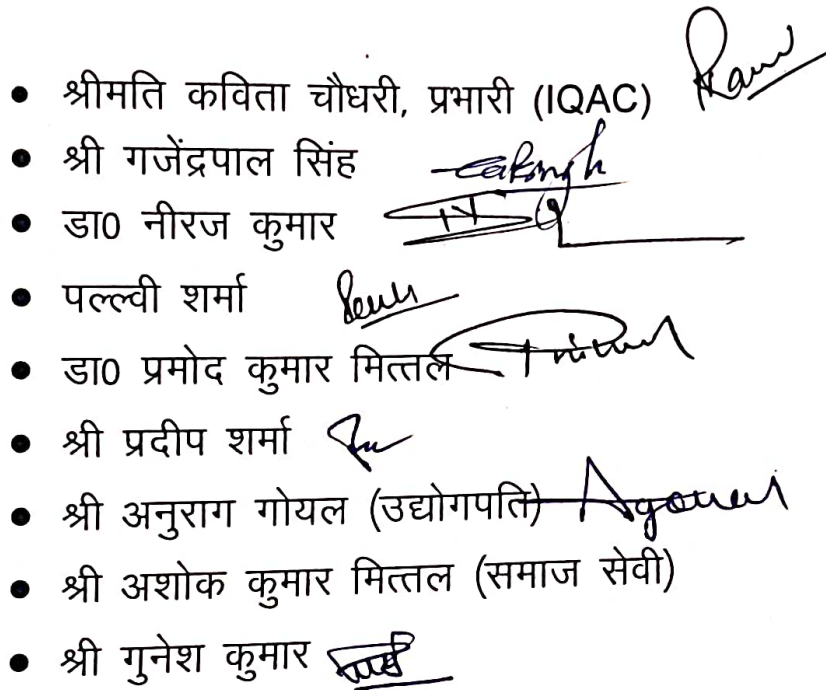 • श्रीमति कविता चौधरी, प्रभारी (IQAC)
• श्री गजेंद्रपाल सिंह
• डा0 नीरज कुमार
• पल्ल्वी शर्मा
• डा0 प्रमोद कुमार मित्तल
• श्री प्रदीप शर्मा
• श्री अनुराग गोयल (उद्योगपति)
• श्री अशोक कुमार मित्तल (समाज सेवी)
• श्री गुनेश कुमार